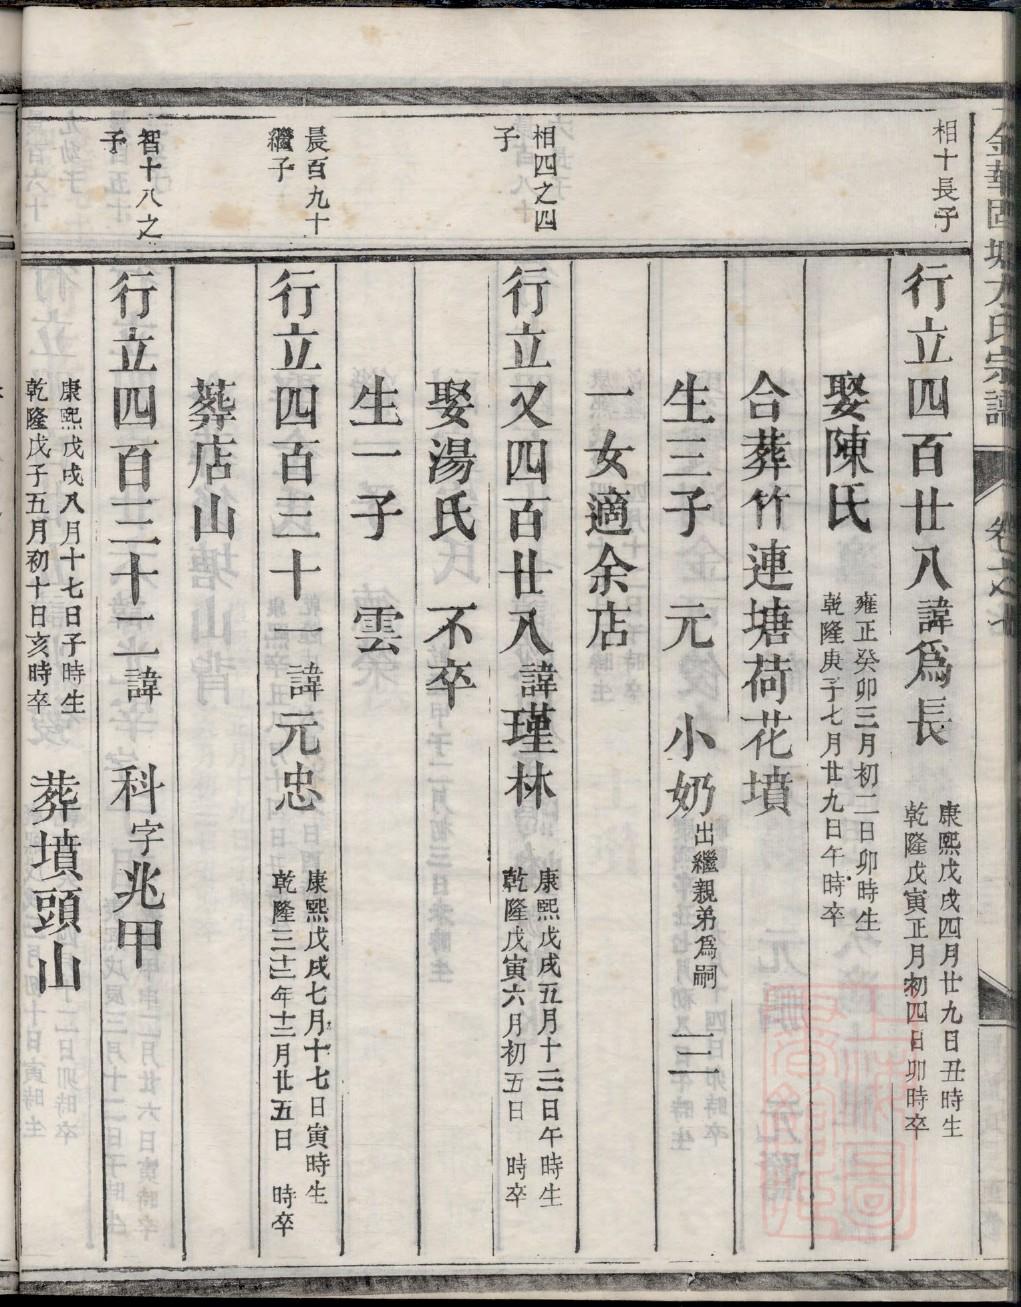 金華固塘方氏宗譜 卷之七
相十長子
行立四百廿八諱爲長 康熙戊戌四月廿九日丑時生
乾隆戊寅正月初四日卯時卒
娶陳氏 雍正癸卯三月初二日卯時生
乾隆庚子七月廿九日午時卒
合葬竹連塘荷花墳
生三子 元 小奶出繼親弟爲嗣 三
一女適余店
相四之四
子
行立又四百廿八諱瑾林 康熙戊戌五月十三日午時生
乾隆戊寅六月初五日 時卒
娶湯氏 不卒
生一子 雲
晨百九十
繼子
行立四百三十一諱元忠 康熙戊戌七月十七日寅時生
乾隆三十二年十二月廿五日 時卒
葬店山
智十八之
子
行立四百三十二諱 科字兆甲
康熙戊戌八月十七日子時生
乾隆戊子五月初十日亥時卒 葬墳頭山